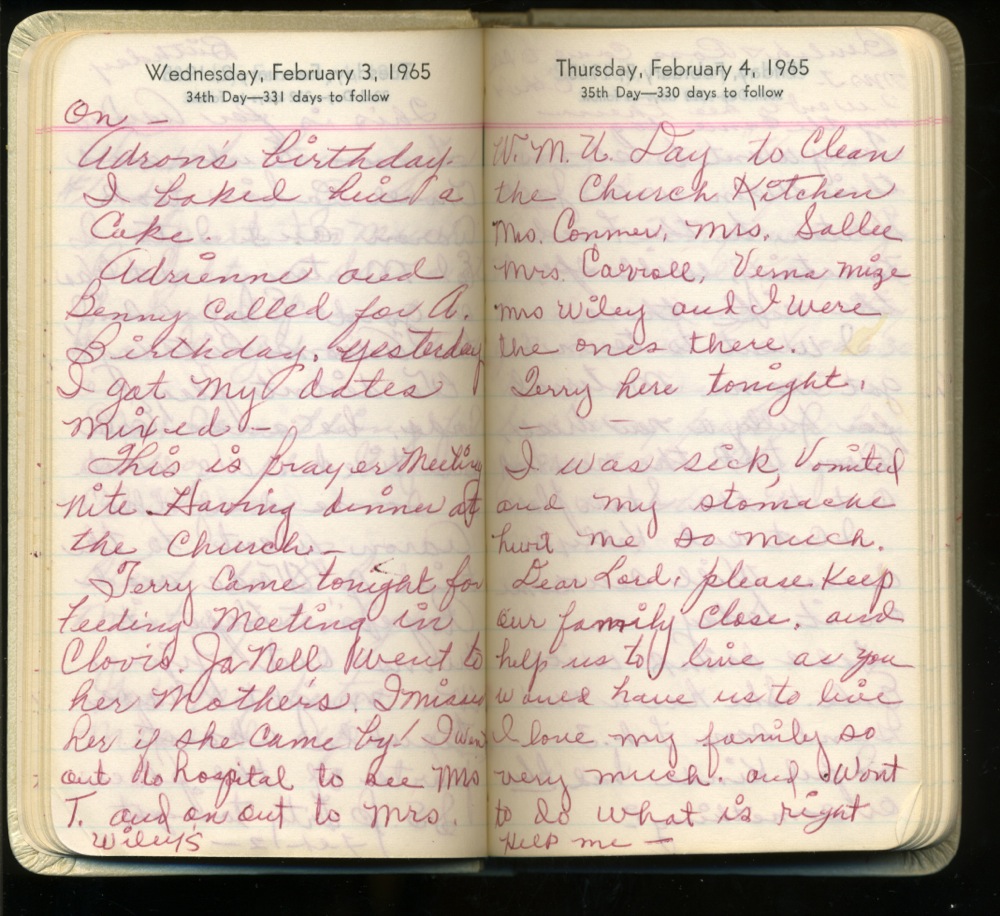 Wednesday, February 3, 1965
34th Day—331 days to follow
On –
Adron's birthday.
I baked him a
Cake.
Adrienne and
Benny called for A.
Birthday. yesterday
I got my dates
mixed –
This is prayer Meeting
nite. Having dinner at
the Church –
Terry came tonight for
Feeding Meeting in
Clovis. JaNell went to
her Mother's. I missed
her if she came by! I went
out to hospital to see Mrs
T. and on out to Mrs.
Wiley's
Thursday, February 4, 1965
35th Day—330 days to follow
W. M. U. Day to Clean
the Church Kitchen
Mrs. Conner, Mrs. Sallee
Mrs. Carroll, Verna Mize
Mrs Wiley and I were
the ones there.
Terry here tonight.
–
I was sick, Vomited
and my stomache
hurt me so much.
Dear Lord, please Keep
our family Close. and
help us to live as you
would have us to live
I love my family so
very much. and Want
to do what is right
Help me –